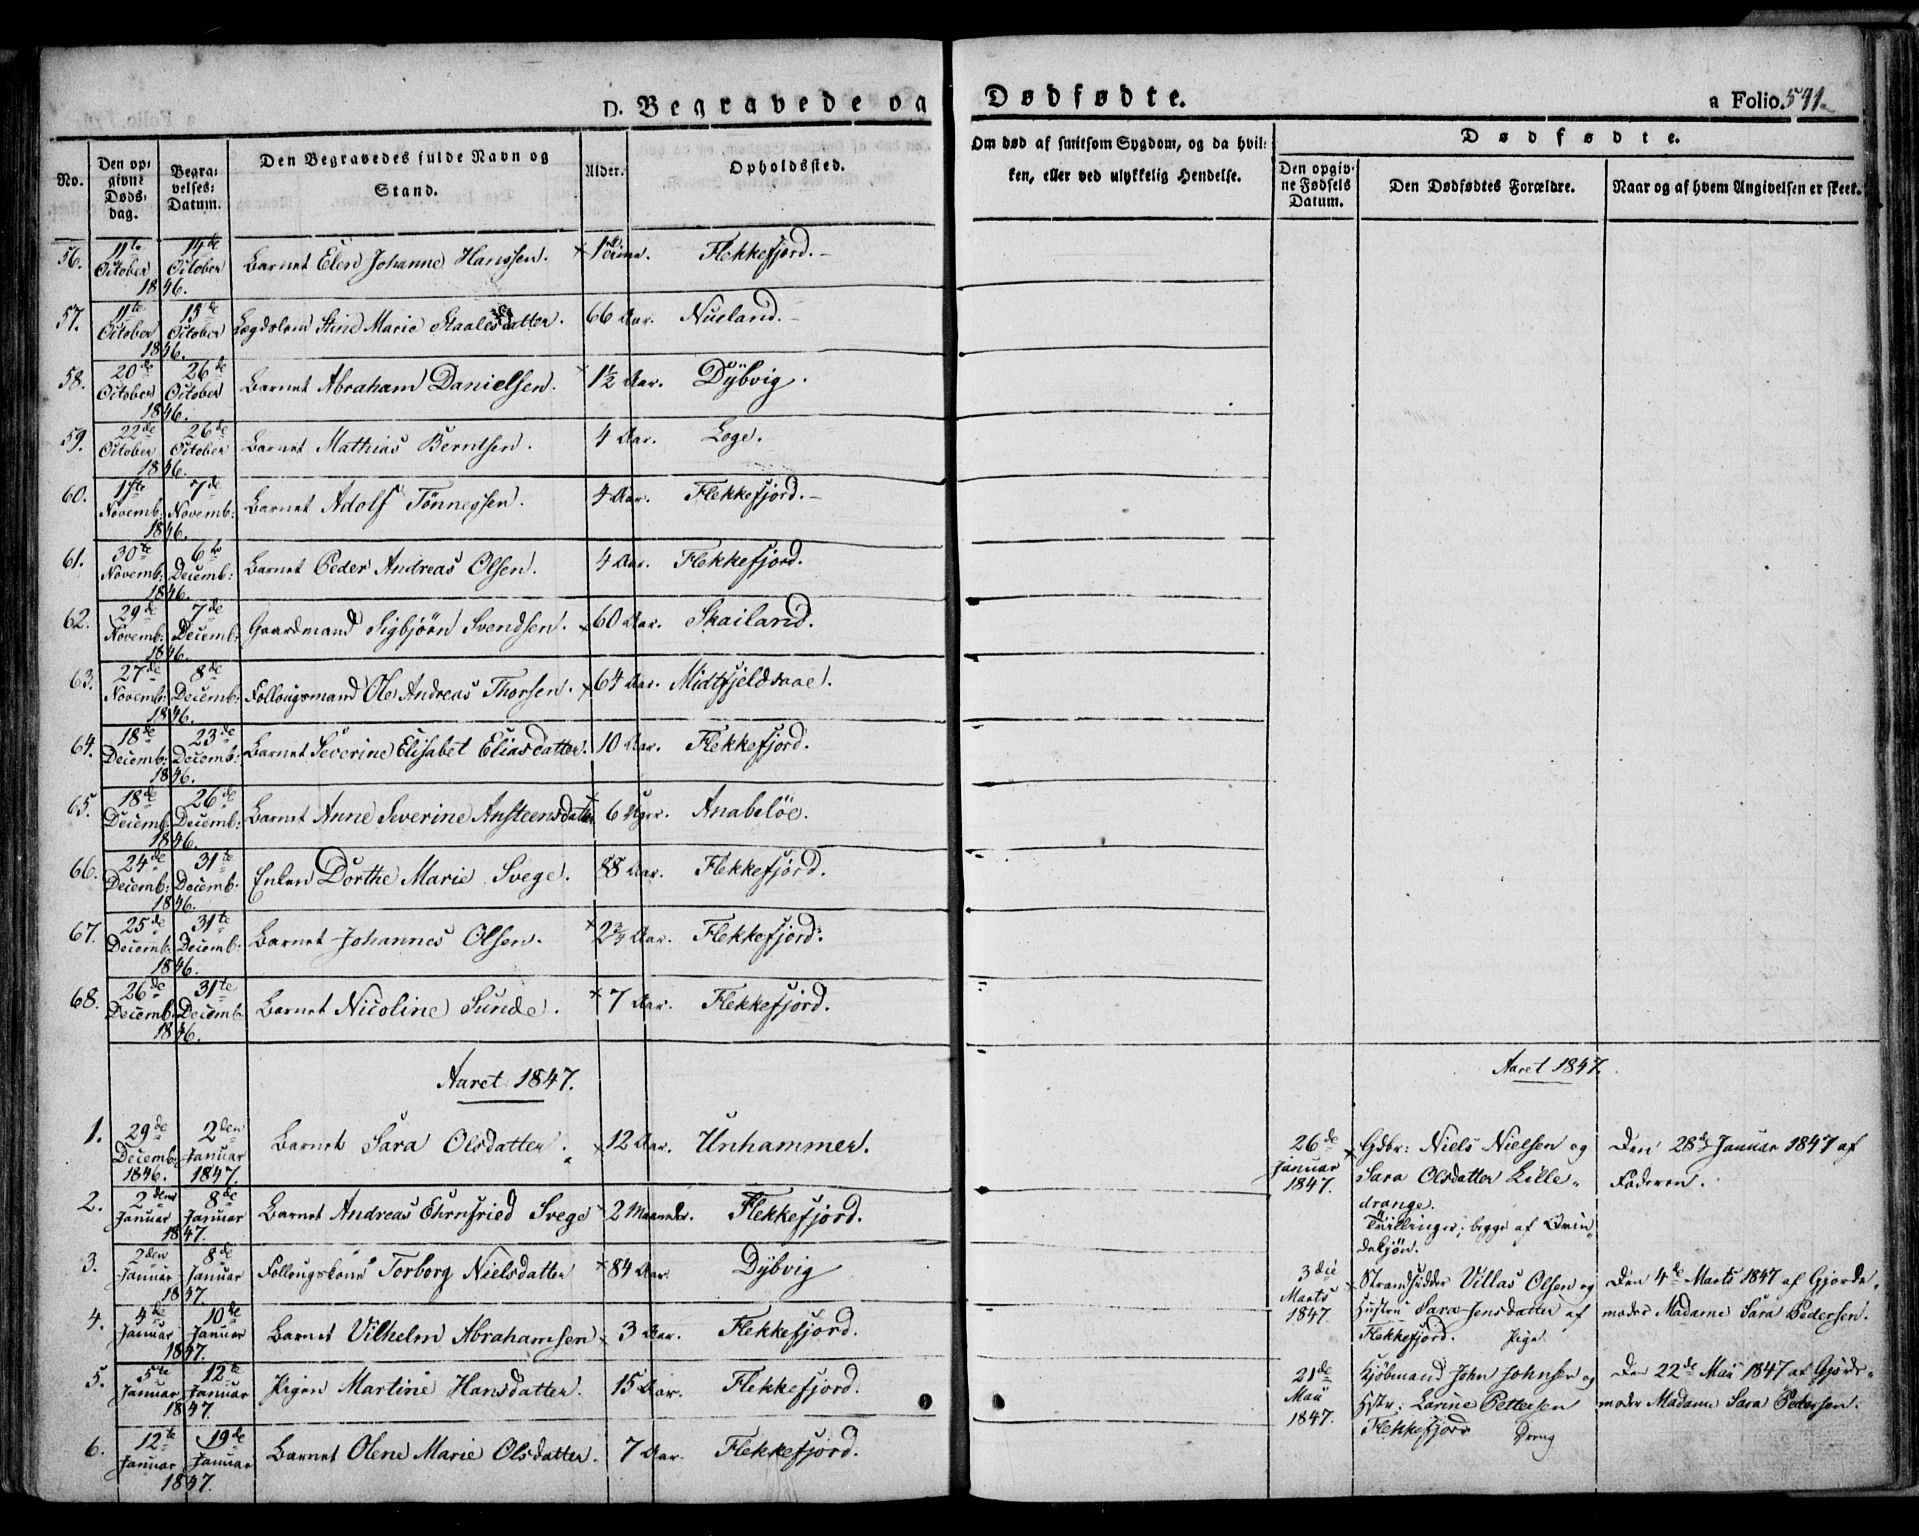 D. Begravede og
Dødfødte.
a Folio. 541.
No.
Den op-
givne
Døds-
dag.
Begra-
velses-
Datum.
Den Begravedes fulde Navn og
Stand.
Alder.
Opholdssted.
Om død af smitsom Sygdom, og da hvil-
ken, eller ved ulykkelig Hendelse.
Dødfødte.
Den opgiv-
ne Fødsels
Datum.
Den Dødfødtes Forældre.
Naar og af hvem Angivelsen er skeet.
56. 11te October 14de October 1846. Barnet Elen Johanne Hanssen. × 1 Flekkefjord.
57. 11te October 15de October 1846. Lægdslem Stine Marie Staalesdatter. 66 Aar. Nueland.
58. 20de October 26de October 1846. Barnet Abraham Danielsen. × 1½ Aar. Dÿbvig.
59. 22de October 26de October 1846. Barnet Mathias Berntsen. 4 Aar. Loge.
60. 1ste Novemb: 7de Novemb: 1846. Barnet Adolf Tönnessen. 4 Aar. Flekkefjord.
61. 30te Novemb: 6te Decemb: 1846. Barnet Peder Andreas Olsen. 4 Aar. Flekkefjord.
62. 29de Novemb: 7de Decemb: 1846. Gaardmand Sigbjörn Svendsen. × 60 Aar. Skailand.
63. 27de Novemb: 8de Decemb: 1846. Follougsmand Ole Andreas Thorsen. × 64 Aar. Midtfjeldsaae.
64. 18de Decemb: 23de Decemb: 1846. Barnet Severine Elisabet Eliasdatter. 10 Aar. Flekkefjord.
65. 18de Decemb: 26de Decemb: 1846. Barnet Anne Severine Ansteensdatter 6 Uger. Anabelöe.
66. 24de Decemb: 31te Decemb: 1846. Enken Dorthe Marie Svege. 88 Aar. Flekkefjord.
67. 25de Decemb: 31te Decemb: 1846. Barnet Johannes Olsen. × 2¾ Aar. Flekkefjord.
68. 26de Decemb: 31te Decemb: 1846. Barnet Nicoline Sunde. × 7 Aar. Flekkefjord.
Aaret 1847.
1. 29de Decemb: 1846. 2den Januar 1847. Barnet Sara Olsdatter. × 12 Aar. Unhammer.
2. 2den Januar 8de Januar 1847. Barnet Andreas Ehrnfried Svege × 2 Maaneder. Flekkefjord.
3. 2den Januar 8de Januar 1847. Follougskone Torborg Nielsdatter × 84 Aar. Dÿbvig
4. 4de Januar 10de Januar 1847. Barnet Vilhelm Abrahamsen × 3 Aar. Flekkefjord.
5. 5te Januar 12te Januar 1847. Pigen Martine Hansdatter. 15 Aar. Flekkefjord.
6. 12te Januar 19de Januar 1847. Barnet Olene Marie Olsdatter. 7 Aar. Flekkefjord.
Aaret 1847.
26de Januar 1847. × Gdbr: Niels Nielsen og
Sara Olsdatter Lille-
drange.
Tvillinger; begge af Qvin-
dekjön.
Den 28de Januar 1847 af
Faderen.
3die Marts 1847. × Strandsidder Villas Olsen og
Hustru Sara Jensdatter af
Flekkefjord. Pige.
Den 4de Marts 1847 af Gjorde-
moder Madame Sara Pedersen.
21de Mai 1847. Kjöbmand John Johnsen og
Hstr: Larine Pettersen
Flekkefjord Dreng
Den 22de Mai 1847 af Gjorde-
moder Madame Sara Pedersen.